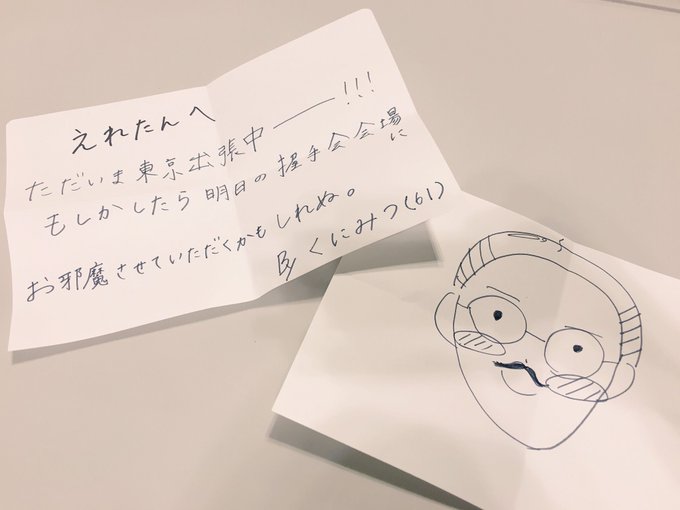 えれたんへ
ただいま東京出張中――!!!
もしかしたら明日の握手会会場に
お邪魔させていただくかもしれぬ。
By くにみつ(61)